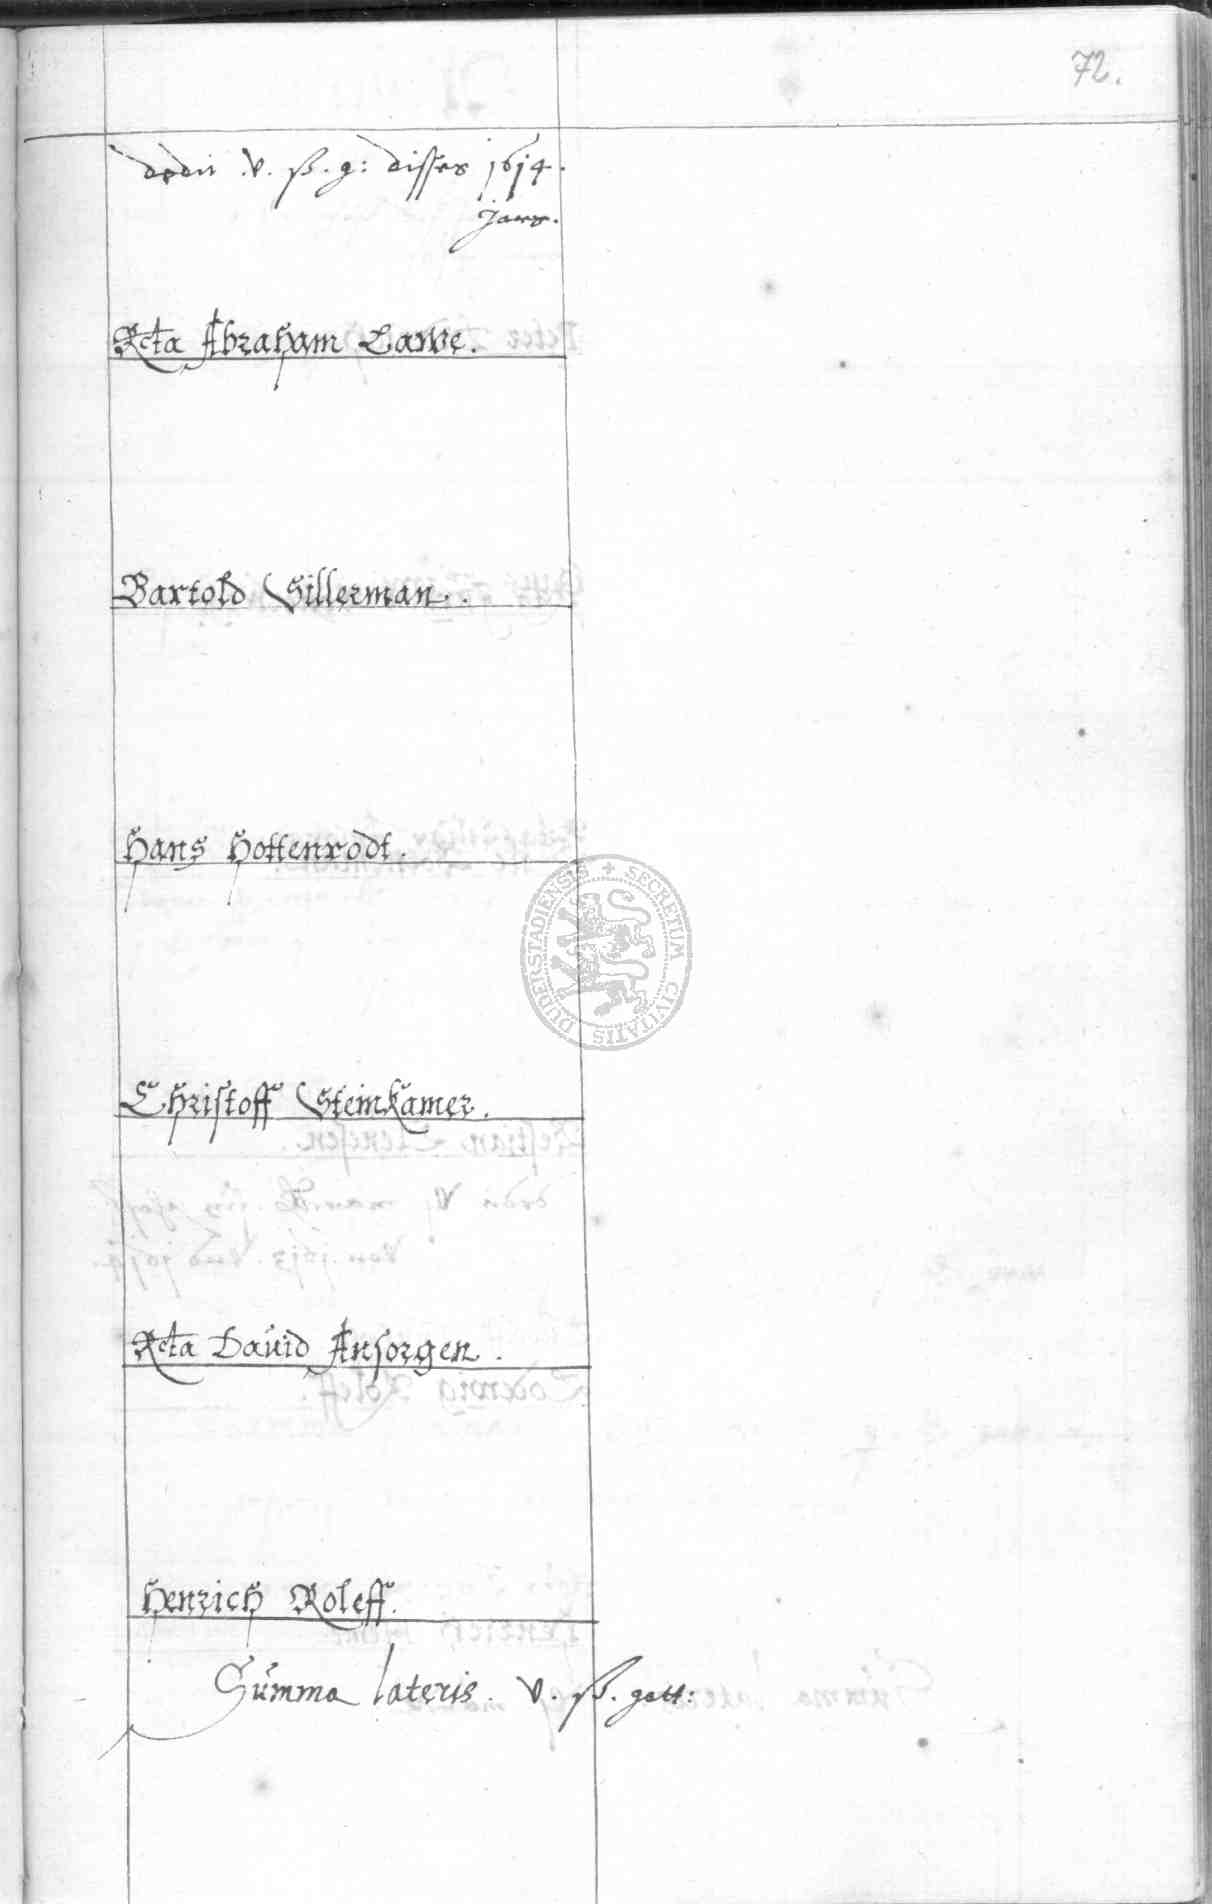 72.
dedit .v. ß. g: disses 1614.
Jars.
Rcta Abraham Lawe.
Bartold Sillerman.
Hans Hottenrodt.
Christoff Steinkamer.
Rcta Dauid Ansorgen.
Henrich Roleff.
Summa lateris. v. ß. gott:
SECRETUM CIVITATIS DUDERSTADIENSIS